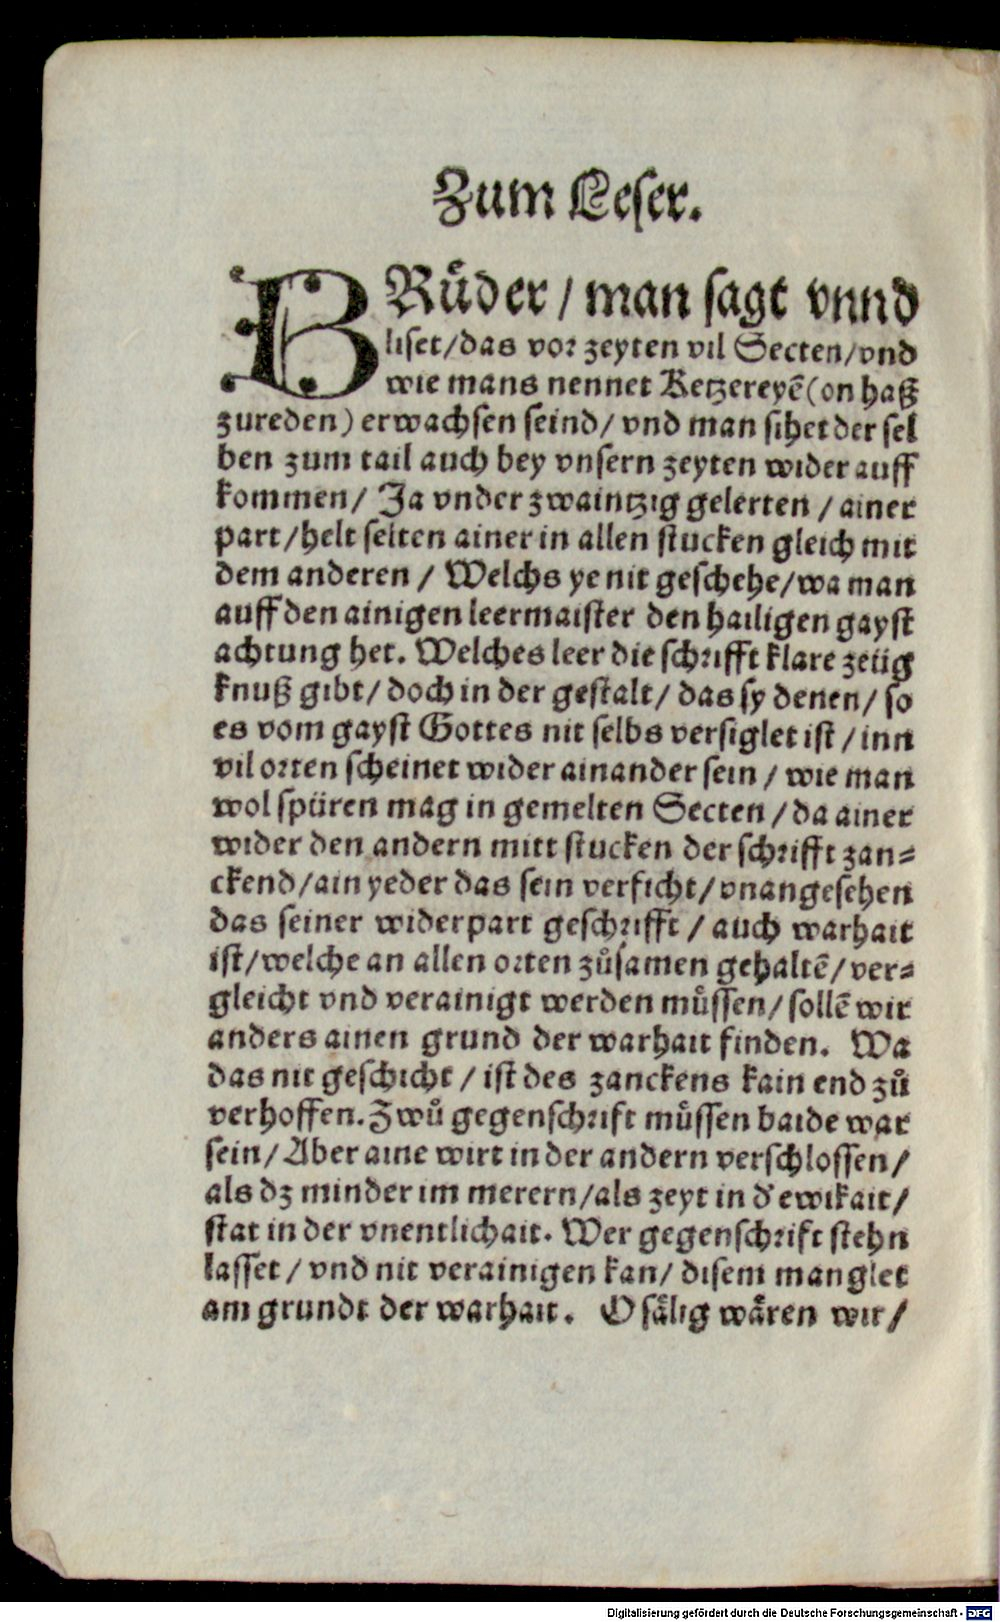 Zum Leser.
BRuͤder / man sagt vnnd
liset/das vor zeyten vil Secten/vnd
wie mans nennet Ketzereyẽ(on haß
zureden) erwachsen seind/ vnd man sihet der sel
ben zum tail auch bey vnsern zeyten wider auff
kommen/ Ja vnder zwaintzig gelerten / ainer
part/helt selten ainer in allen stucken gleich mit
dem anderen / Welchs ye nit geschehe/wa man
auff den ainigen leermaister den hailigen gayst
achtung het. Welches leer die schrifft klare zeüg
knuß gibt/ doch in der gestalt/ das sy denen/ so
es vom gayst Gottes nit selbs versiglet ist / inn
vil orten scheinet wider ainander sein / wie man
wol spüren mag in gemelten Secten / da ainer
wider den andern mitt stucken der schrifft zan⸗
ckend/ain yeder das sein verficht/ vnangesehen
das seiner widerpart geschrifft / auch warhait
ist/welche an allen orten zuͦsamen gehaltẽ/ ver⸗
gleicht vnd verainigt werden muͤssen/ sollẽ wir
anders ainen grund der warhait finden. Wa
das nit geschicht / ist des zanckens kain end zuͦ
verhoffen. Zwuͦ gegenschrift muͤssen baide war
sein/ Aber aine wirt in der andern verschlossen/
als dz minder im merern/als zeyt in d' ewikait/
stat in der vnentlichait. Wer gegenschrift stehn
lasset / vnd nit verainigen kan/ disem manglet
am grundt der warhait. O saͤlig waͤren wir/
Digitalisierung gefördert durch die Deutsche Forschungsgemeinschaft - DFG